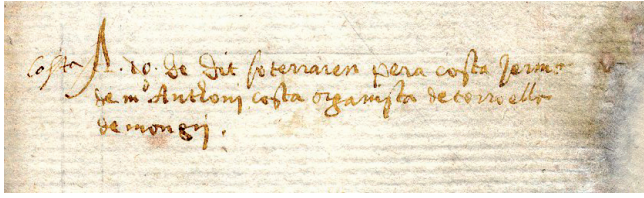 Costa A. do. de dit soterraren pera costa jerma
de mº Anthoni costa organista de torroella
de mongri.